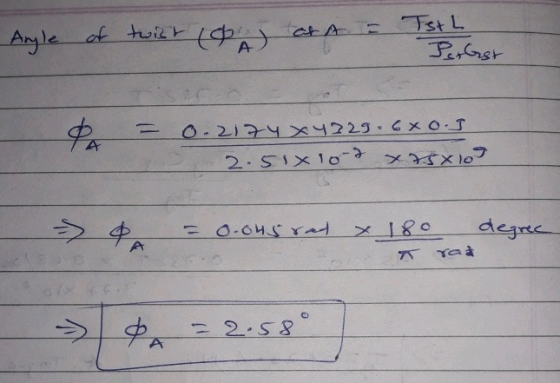 Angle of twist (ϕA) at A = TstL / JstGst
ϕA = 0.2174 × 4329.6 × 0.5 / 2.51 × 10⁻⁷ × 75 × 10⁹
⇒ ϕA = 0.045 rad × 180 / π rad degree
⇒ ϕA = 2.58°